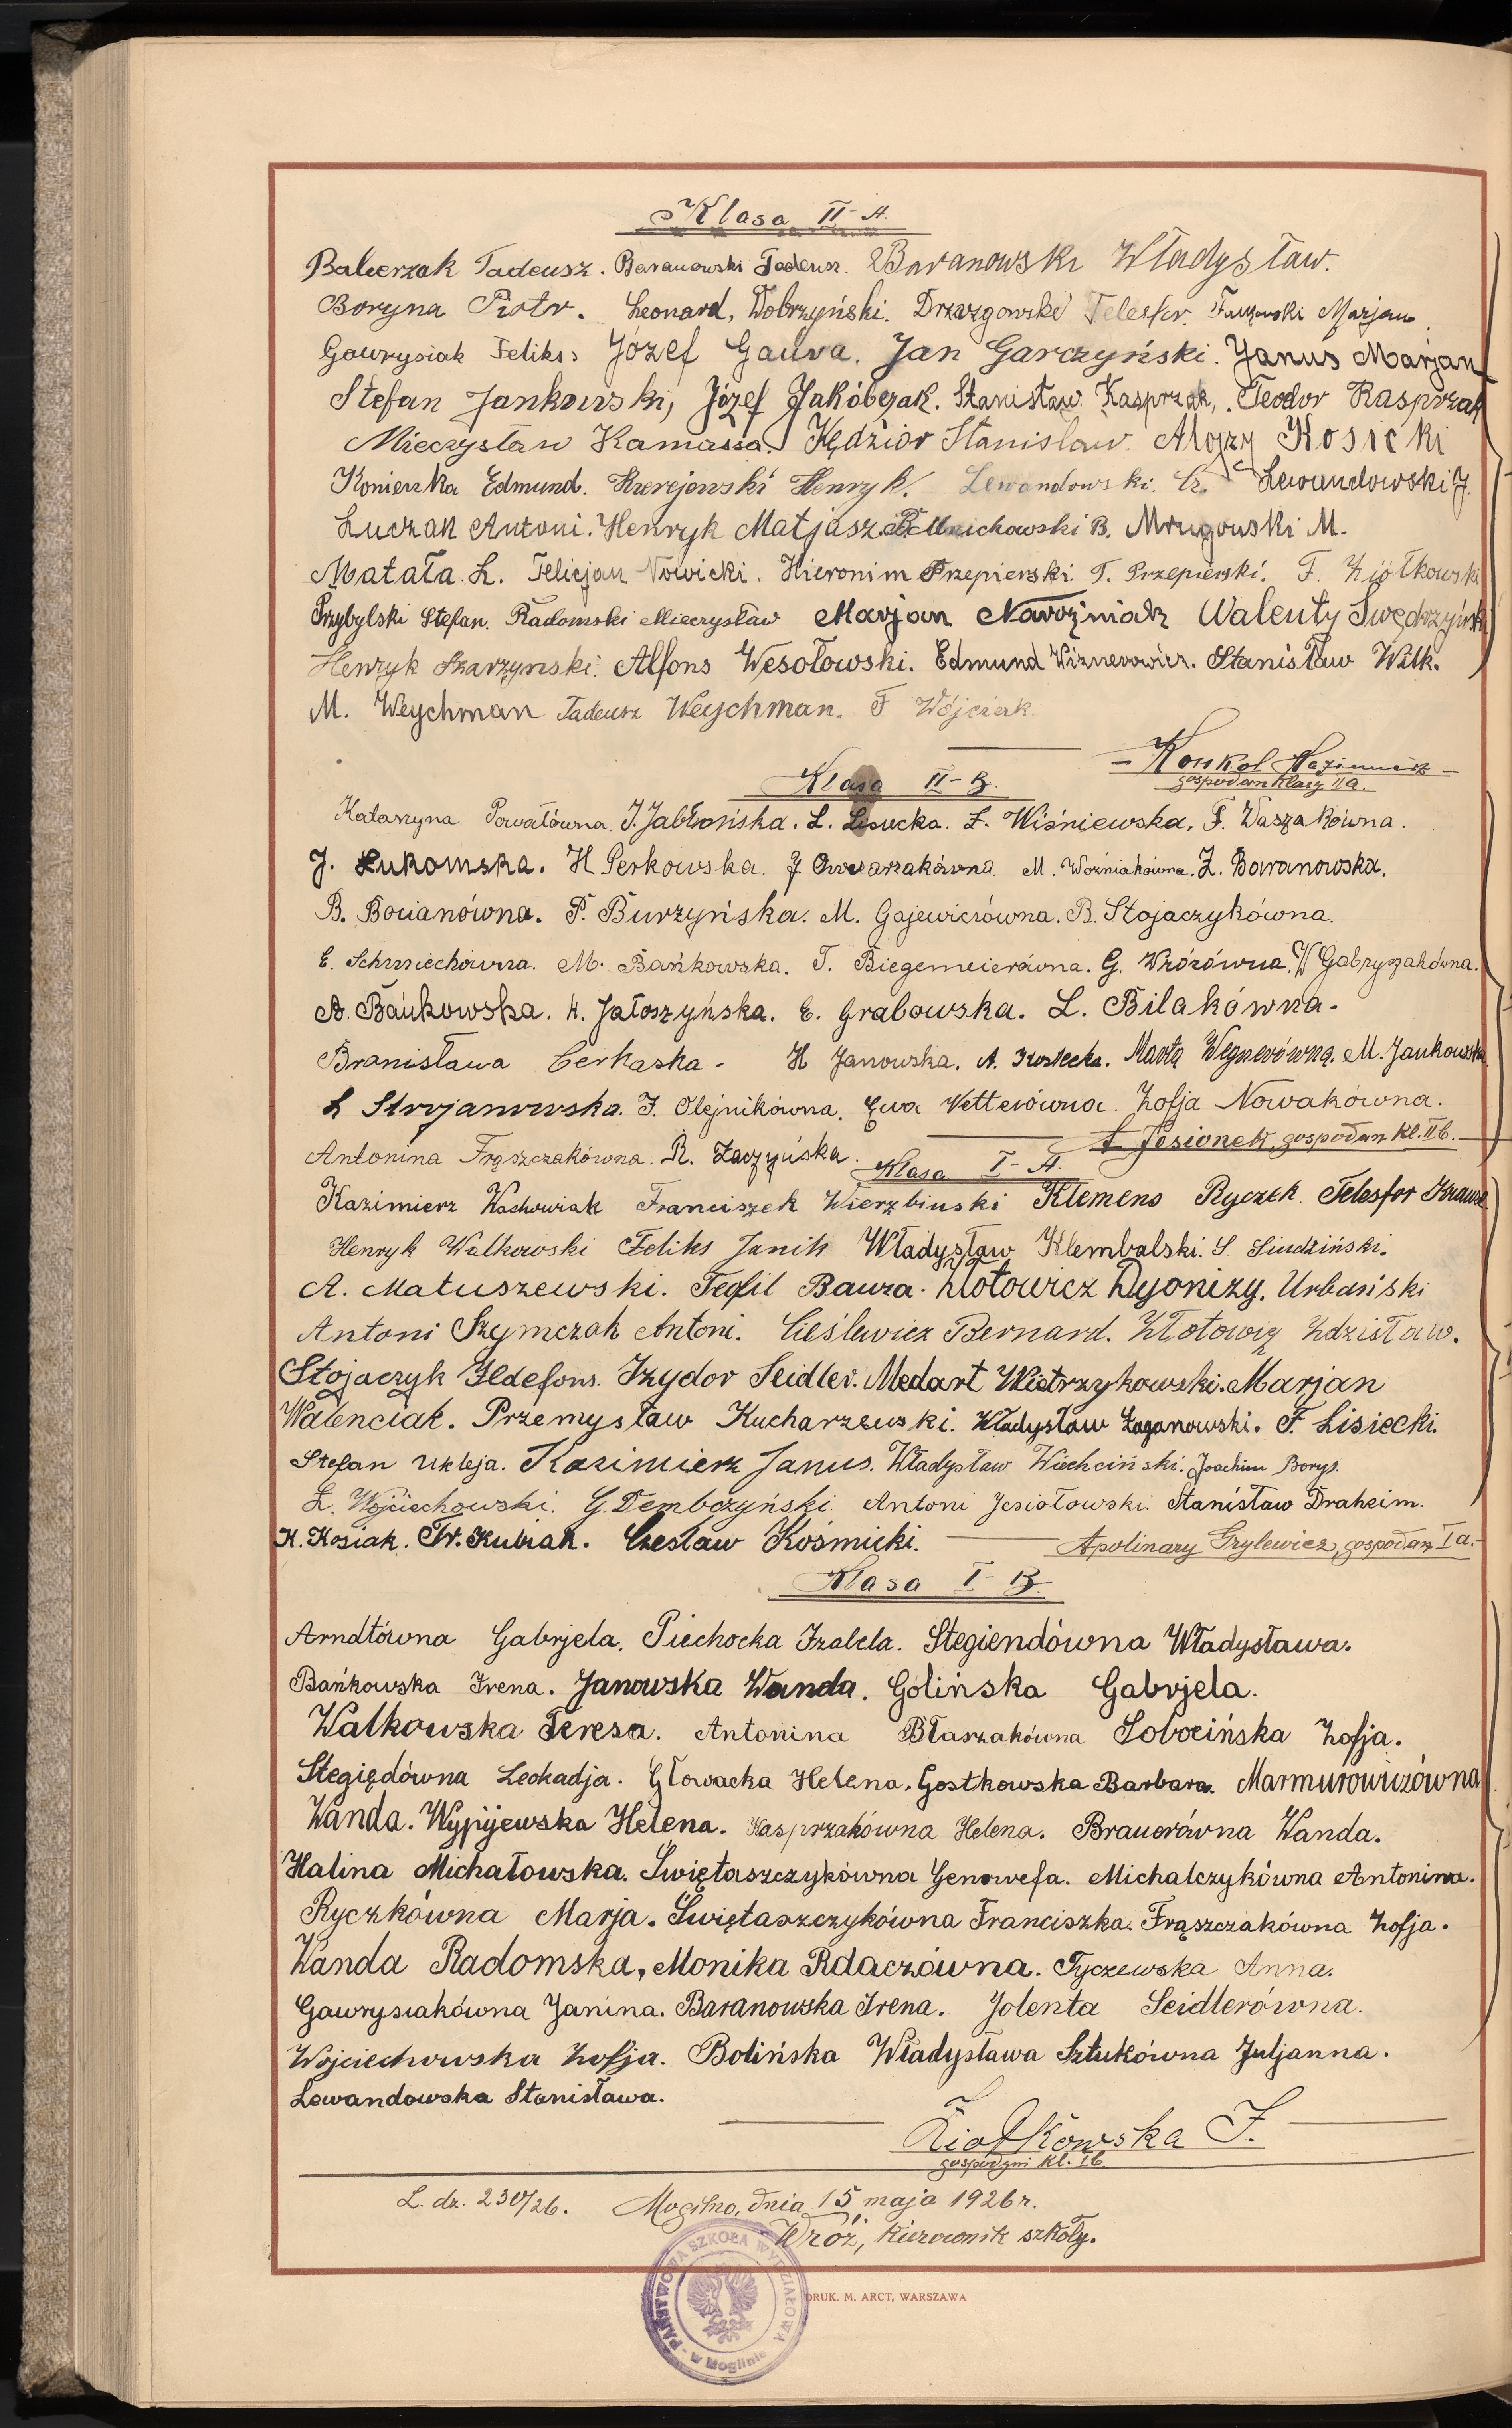 Klasa II-A.
Balcerzak Tadeusz. Baranowski Tadeusz. Baranowski Władysław.
Boryna Piotr. Leonard, Dobrzyński. Drzazgowski Telesfor. Marjan
Gawrysiak Feliks. Józef Gauza. Jan Garczyński. Janus Marjan
Stefan Jankowski, Józef Jakóbczak. Stanisław Kasprzak. Teodor Kasprzak
Mieczysław Kamassa. Kędzior Stanisław. Alojzy Kosicki
Konieczka Edmund. Henryk. Lewandowski. Cz. Lewandowski J.
Łuczak Antoni. Henryk Matjasz. Michowski B. Mrugowski M.
Matała L. Felicjan Nowicki. Hieronim Przepierski. T. Przepierski. F. Ziółkowski
Przybylski Stefan. Radomski Mieczysław Marjan Nawoźniak Walenty Swędrzyński
Henryk Szarzyński. Alfons Wesołowski. Edmund Wiznerowicz. Stanisław Wilk.
M. Weychman Tadeusz Weychman. F Wójciak
Konkol Kazimierz
gospodarz klasy IIa.
Klasa II-B.
Katarzyna Powałówna. J. Jabłońska. L. Lisiecka. Z. Wiśniewska. F. Waszakówna.
J. Łukomska. H Perkowska. J. Owczarzakówna. M. Woźniakówna. Z. Baranowska.
B. Bocianówna. P. Burzyńska. M. Gajewiczówna. B. Stojaczykówna.
E. Schmiechówna. M. Bańkowska. T. Biegemeierówna. G. Wróżówna. W Gabryszakówna.
A. Bańkowska. H. Jałoszyńska. E. Grabowska. L. Bilakówna.
Bronisława Cerkaska. H Janowska. A. Kosiecka. Marta Wegnerówna. M. Jankowska
L Strojanowska. J. Olejnikówna. Ewa Vetterówna. Zofja Nowakówna.
Jesionek, gospodarz kl. IIb.
Antonina Frąszczakówna. R. Łaczyńska.
Klasa I-A.
Kazimierz Wachowiak Franciszek Wierzbiński Klemens Ryczek. Telesfor Krause
Henryk Walkowski Feliks Janik Władysław Klembalski. S. Siudziński.
A. Matuszewski. Teofil Bauza. Złotowicz Dyonizy. Urbański
Antoni Szymczak Antoni. Cieślewicz Bernard. Złotowicz Zdzisław.
Stojaczyk Ildefons. Izydor Seidler. Medart Wietrzykowski. Marjan
Walenciak. Przemysław Kucharzewski. Władysław Łaganowski. F. Lisiecki.
Stefan Ukleja. Kazimierz Janus. Władysław Wiechciński. Joachim Borys.
Z. Wojciechowski. G. Dembczyński. Antoni Jesiołowski. Stanisław Draheim.
K. Kosiak. Fr. Kubiak. Czesław Kośmicki.
Apolinary Grylewicz, gospodarz Ia.
Klasa I-B.
Arndtówna Gabrjela. Piechocka Izabela. Stegiendówna Władysława.
Bańkowska Irena. Janowska Wanda. Golińska Gabrjela.
Walkowska Teresa. Antonina Błaszakówna Sobocińska Zofja.
Stegiędówna Leokadja. Głowacka Helena. Gostkowska Barbara. Marmurowiczówna
Wanda. Wypijewska Helena. Kasprzakówna Helena. Brauerówna Wanda.
Halina Michałowska. Świętaszczykówna Genowefa. Michalczykówna Antonina.
Ryczkówna Marja. Świętaszczykówna Franciszka. Frąszczakówna Zofja.
Wanda Radomska, Monika Rdaczówna. Tyczewska Anna.
Gawrysiakówna Janina. Baranowska Irena. Jolenta Seidlerówna.
Wojciechowska Zofja. Bolińska Władysława Sztukówna Juljanna.
Lewandowska Stanisława.
Ziołkowska J.
gospodyni kl. Ib.
L. dz. 230/26. Mogilno, dnia 15 maja 1926 r.
Wróż, kierownik szkoły.
PAŃSTWOWA SZKOŁA WYDZIAŁOWA w Mogilnie
DRUK. M. ARCT, WARSZAWA